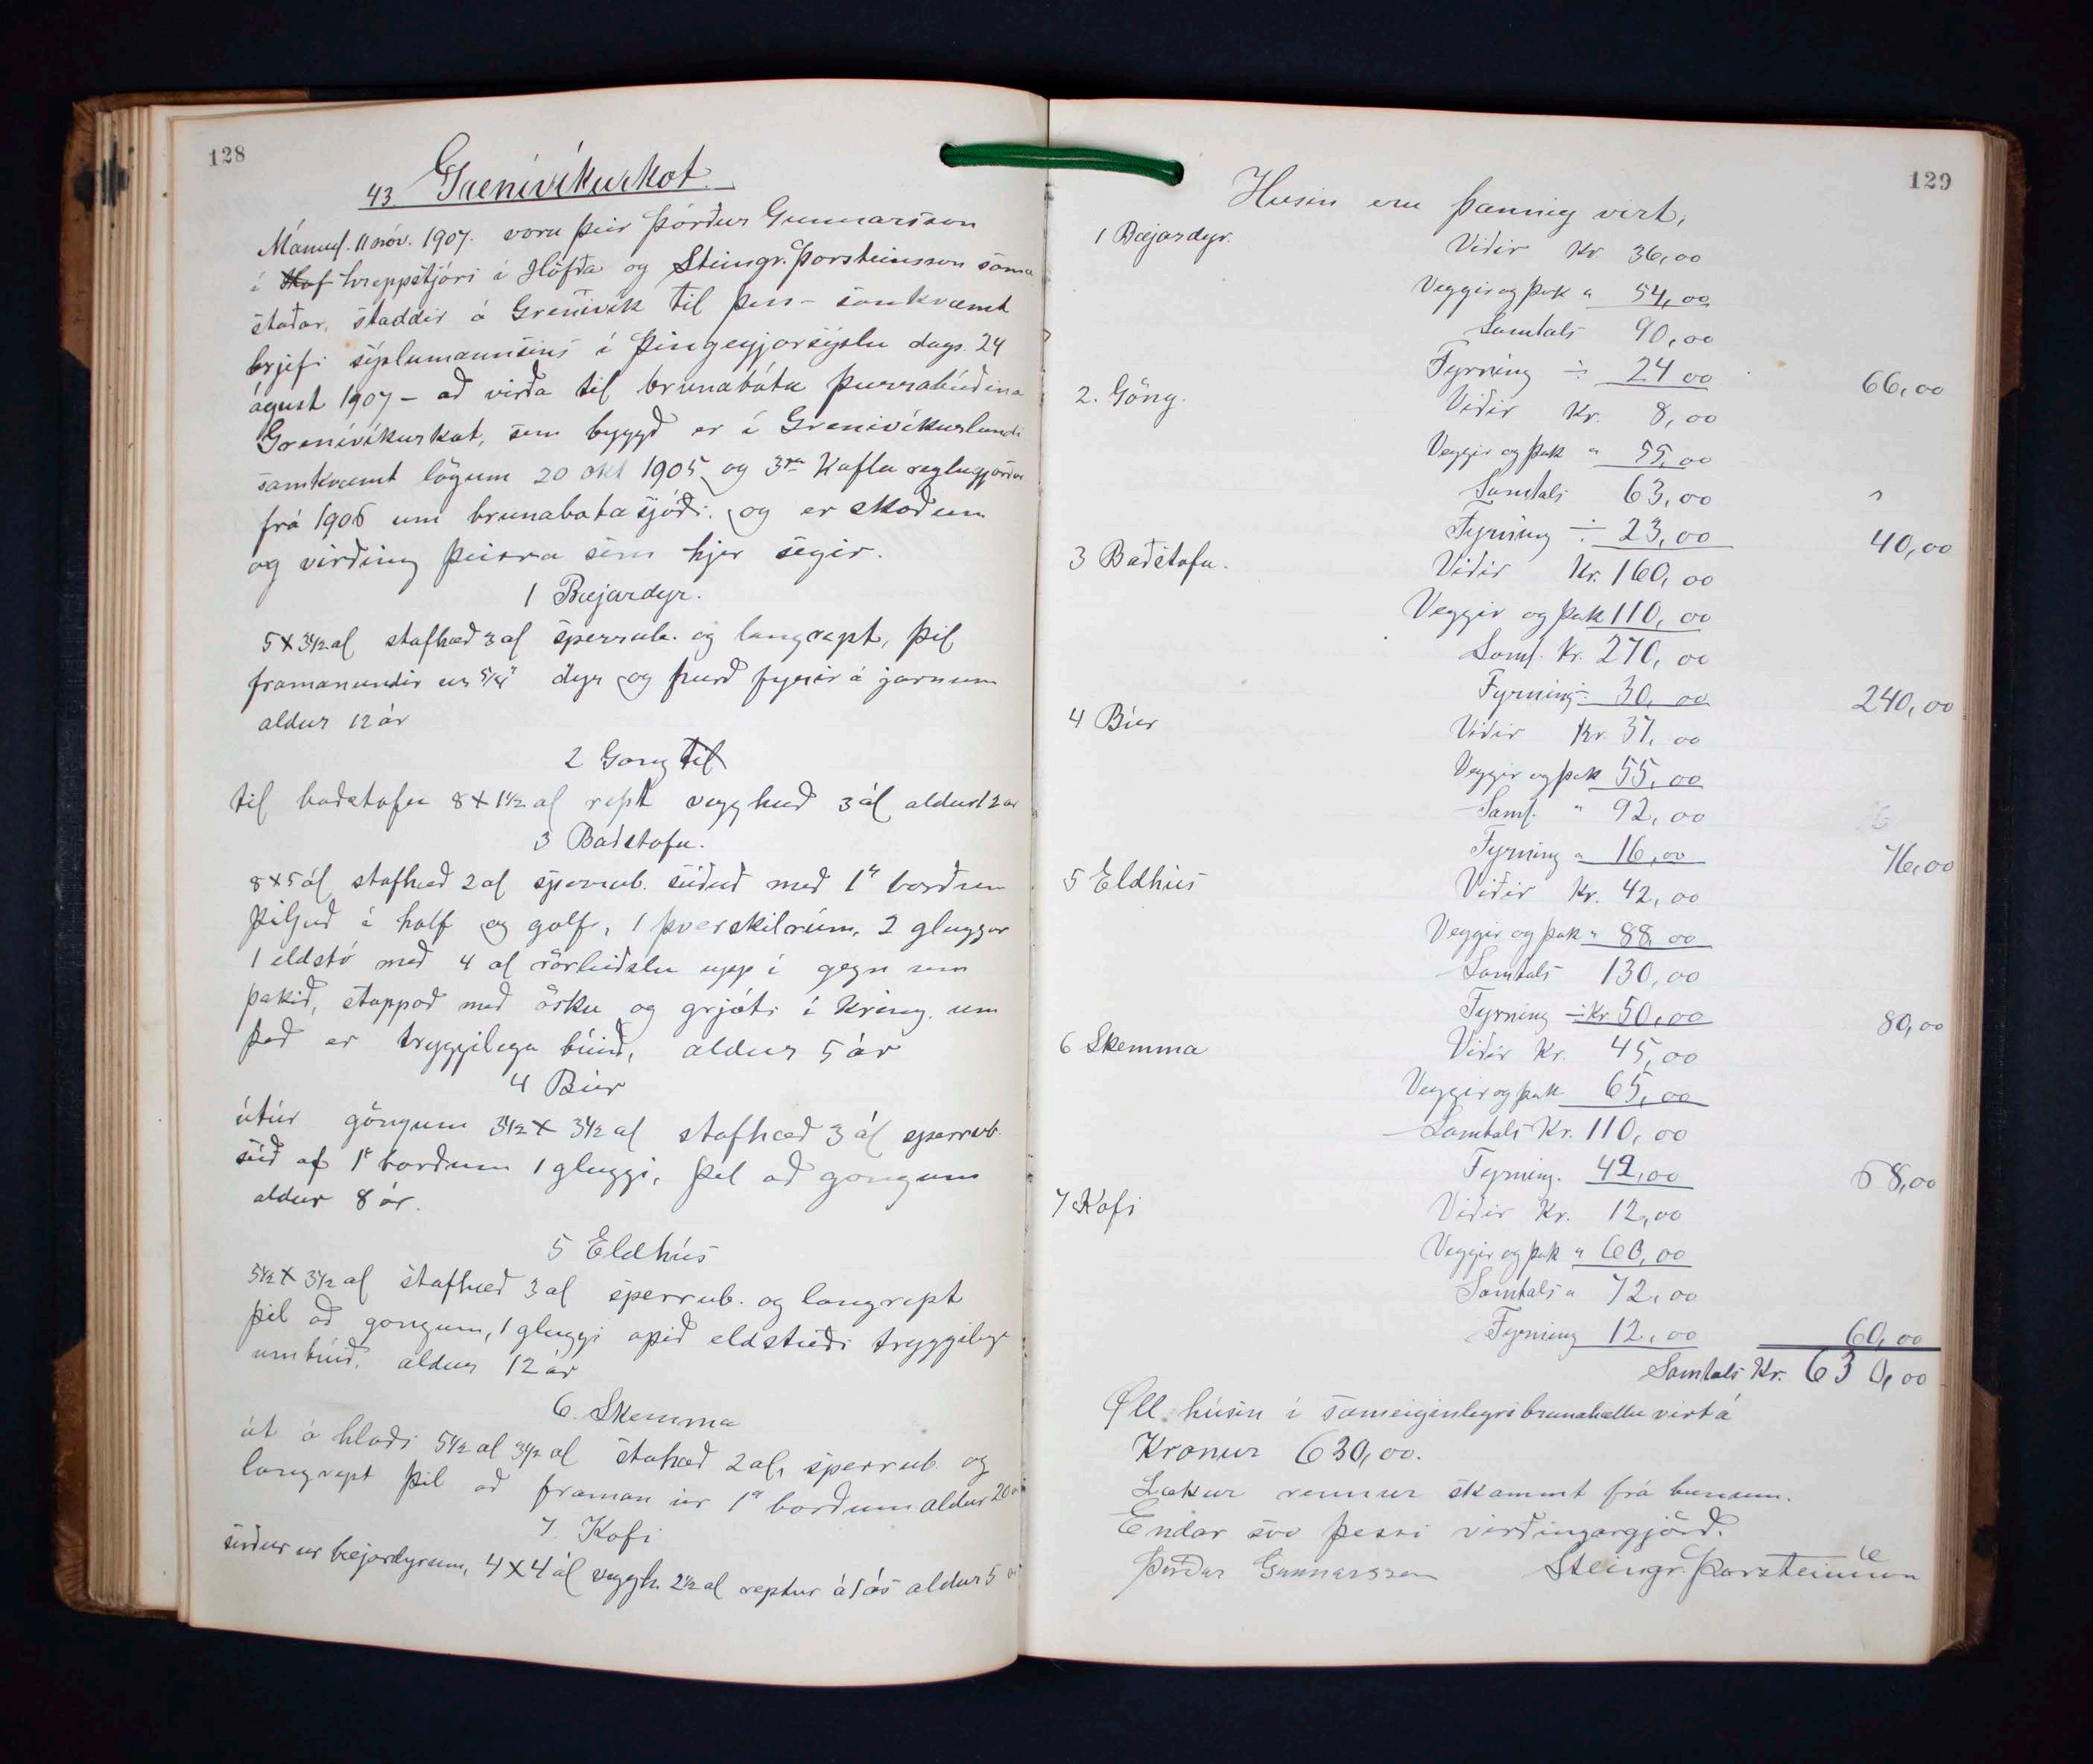 128
43. Grenivíkurkot.
Mánud. 11 nóv. 1907. voru þeir Þórður Gunnarsson
í hreppstjóri í Höfða og Steingr. Þorsteinsson sama
staðar, staddir á Grenivík til þess - samkvæmt
brjefi sýslumannsins í Þingeyjarsýslu dags. 24
ágúst 1907 - að virða til brunabóta þurrabúðina
Grenivíkurkot, sem byggð er í Grenivíkurlandi
samkvæmt lögum 20 okt 1905 og 3ja Kafla reglugjörðar
frá 1906 um brunabotasjóði. og er skoðun
og virðing þeirra sem hjer segir.
1 Bæjardyr.
5 x 3 1/2 al stafhæð 3 al sperrub. og langrept, þil
framanundir úr 5/4" dyr og hurð fyrir á járnum
aldur 12 ár
2 Göng til
til baðstofu 8 x 1 1/2 al rept vegghæð 3 ál aldur 12 ár
3 Baðstofa.
8 x 5 ál stafhæð 2 al sperrub. súðuð með 1" borðum
þiljuð í hólf og golf, 1 þverskilrúm, 2 gluggar
1 eldstó með 4 al rörleiðslu upp í gegn um
þakið, stoppað með ösku og grjóti í Kring. um
það er tryggilega búið, aldur 5 ár
4 Búr
útúr göngum 3 1/2 x 3 1/2 al stafhæð 3 ál sperrub.
súð af 1" borðum 1 gluggi, þil að göngum
aldur 8 ár.
5 Eldhús
5 1/2 x 3 1/2 al stafhæð 3 al sperrub. og langrept
þil að göngum, 1 gluggi opið eldstæði tryggilega
umbúið. aldur 12 ár
6. Skemma
út á hlaði 5 1/2 al 3 1/2 al stahæð 2 al, sperrub. og
langrept þil að framan úr 1" borðum aldur 20 ár
7. Kofi
suður úr bæjardyrum, 4 x 4 ál veggh. 2 1/2 al reptur á 1 ás aldur 5 ár
129
Husin eru þannig virt,
1 Bæjardyr. Viðir Kr. 36,00
Veggir og þak " 54,00
Samtals 90,00
Fyrning ÷ 24 00 66,00
2. Göng. Viðir Kr. 8,00
Veggir og þak " 55,00
Samtals 63,00
Fyrning ÷ 23,00 40,00
3 Baðstofa. Viðir Kr. 160,00
Veggir og þak 110,00
Samt. Kr. 270,00
Fyrning ÷ 30,00 240,00
4 Búr Viðir Kr. 37,00
Veggir og þak 55,00
Samt. " 92,00
Fyrning " 16,00 76,00
5 Eldhús Viðir Kr. 42,00
Veggir og þak " 88,00
Samtals 130,00
Fyrning ÷ Kr 50,00 80,00
6 Skemma Viðir Kr. 45,00
Veggir og þak 65,00
Samtals Kr. 110,00
Fyrning. 42,00 68,00
7 Kofi Viðir Kr. 12,00
Veggir og þak " 60,00
Samtals " 72,00
Fyrning 12,00 60,00
Samtals Kr. 630,00
Öll húsin í sameiginlegri brunahættu virt á
Kronur 630,00.
Lækur rennur skammt frá bænum.
Endar svo þessi virðingargjörð.
Þórður Gunnarsson Steingr. Þorsteinsson